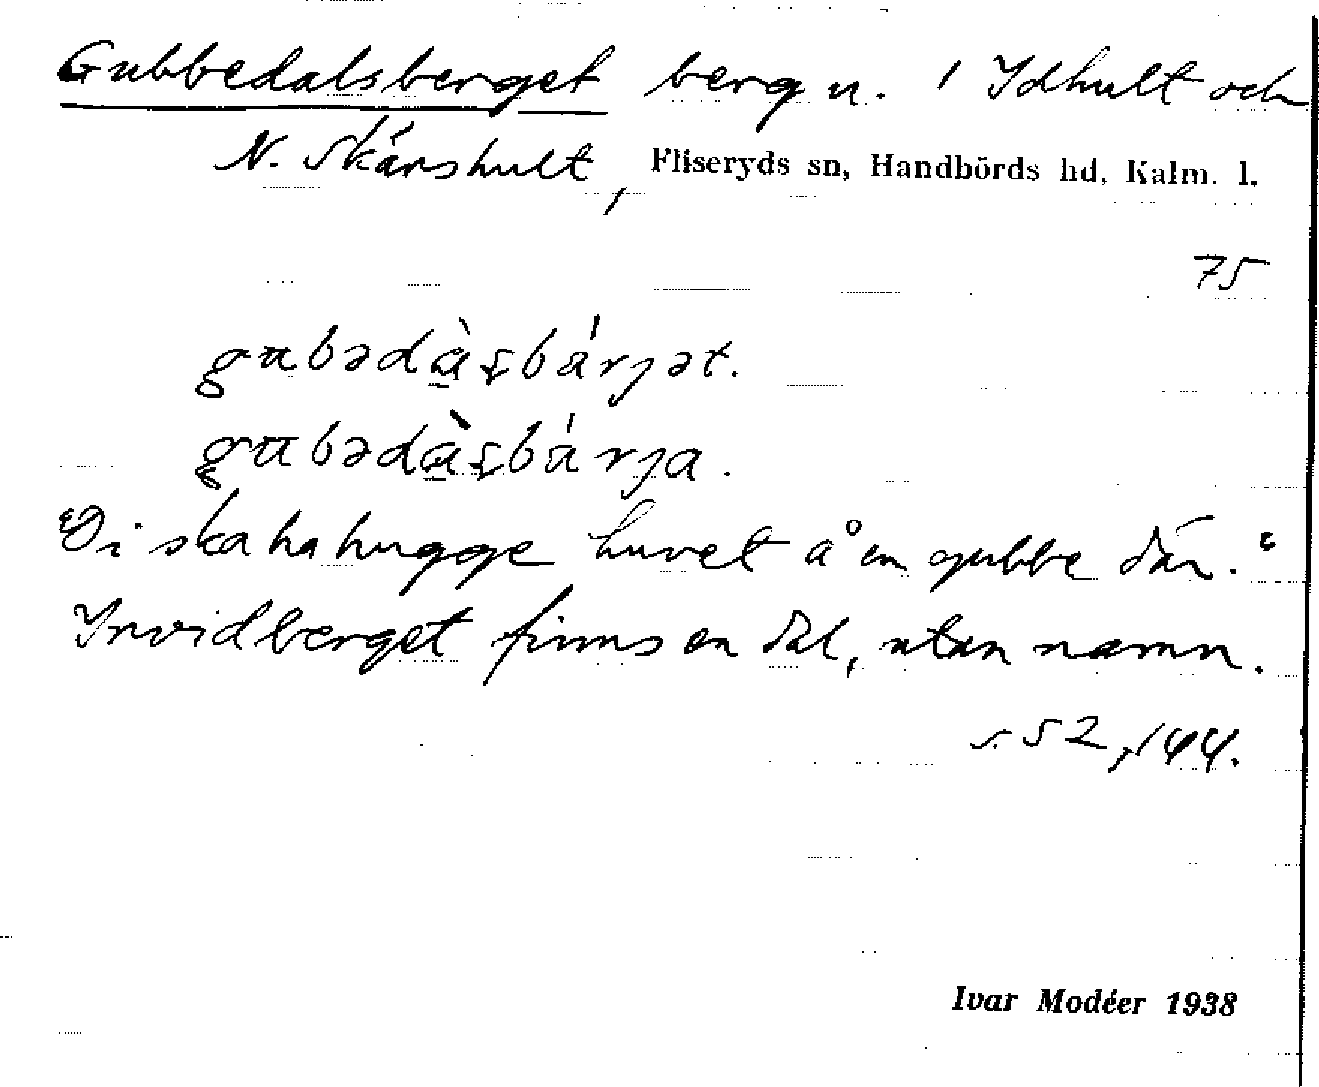 Gubbedalsberget berg n. / Idhult och
N. Skärshult, Fliseryds sn, Handbörds hd, Kalm. l.
75
gubədàʂbárjət.
gubədàʂbárja.
"Di ska ha hugge huvet å en gubbe där."
Invid berget finns en dal, utan namn.
s. 52, 144.
Ivar Modéer 1938